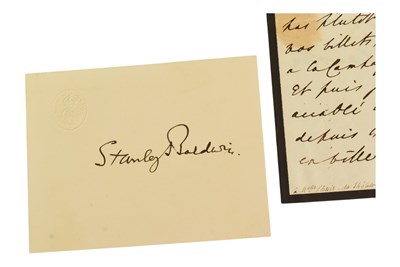 Stanley Baldwin.
pas plutôt
vos billets,
a la Campa
Et puis
aiablé
depuis
en bille